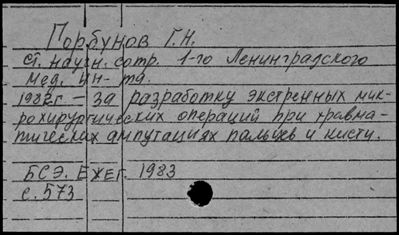 Горбунов Г.Н.
ст. научн. сотр. 1-го Ленинградского
мед. ин-та.
1982г – за разработку экстренных мик-
рохирургических операций при травма-
тических ампутациях пальцев и кисти.
БСЭ. Ежег. 1983
с. 573